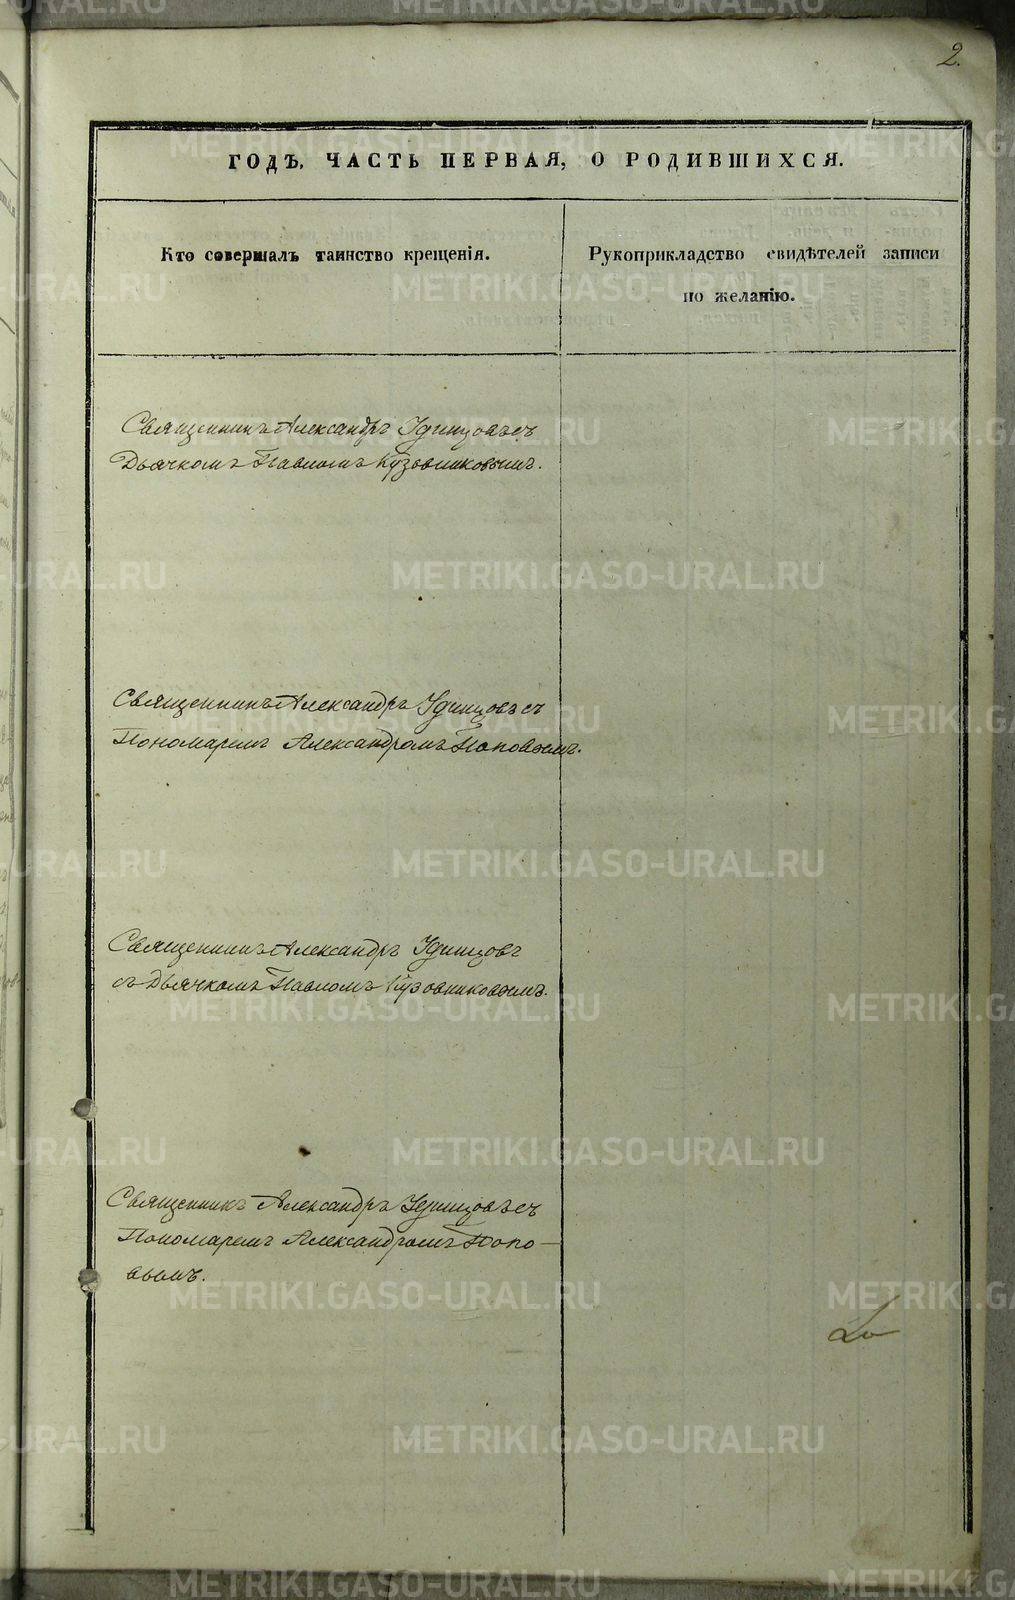 2.
ГОДЪ, ЧАСТЬ ПЕРВАЯ, О РОДИВШИХСЯ.
Кто совершалъ таинство крещенія.
Рукоприкладство свидѣтелей записи
по желанію.
Священникъ Александръ Удинцовъ съ
Дьячкомъ Павломъ Кузовниковымъ.
Священникъ Александръ Удинцовъ съ
Пономаремъ Александромъ Поповымъ.
Священникъ Александръ Удинцовъ
съ Дьячкомъ Павломъ Кузовниковымъ.
Священникъ Александръ Удинцовъ съ
Пономаремъ Александромъ Попо-
вымъ.
METRIKI.GASO-URAL.RU